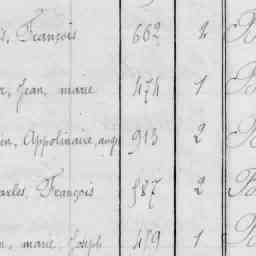 s, François 662 2 B
r, Jean, marie 474 1 B
in, Appolinaire, aug 913 2 B
arles, François 587 2 B
n, marie, Joseph 479 1 B